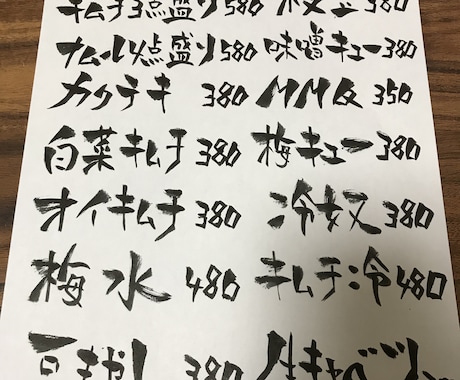 キムチ3点盛り 580
ナムル4点盛り 580 味噌キュー 380
カクテキ 380 MMQ 350
白菜キムチ 380 梅キュー 380
オイキムチ 380 冷奴 380
梅水 480 キムチ冷 480
豆もやし 380 生キャベツ